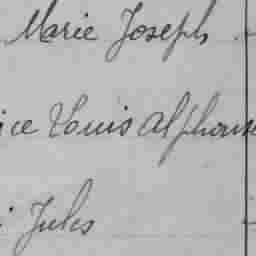 Marie Joseph
ice Louis Alphonse
i Jules